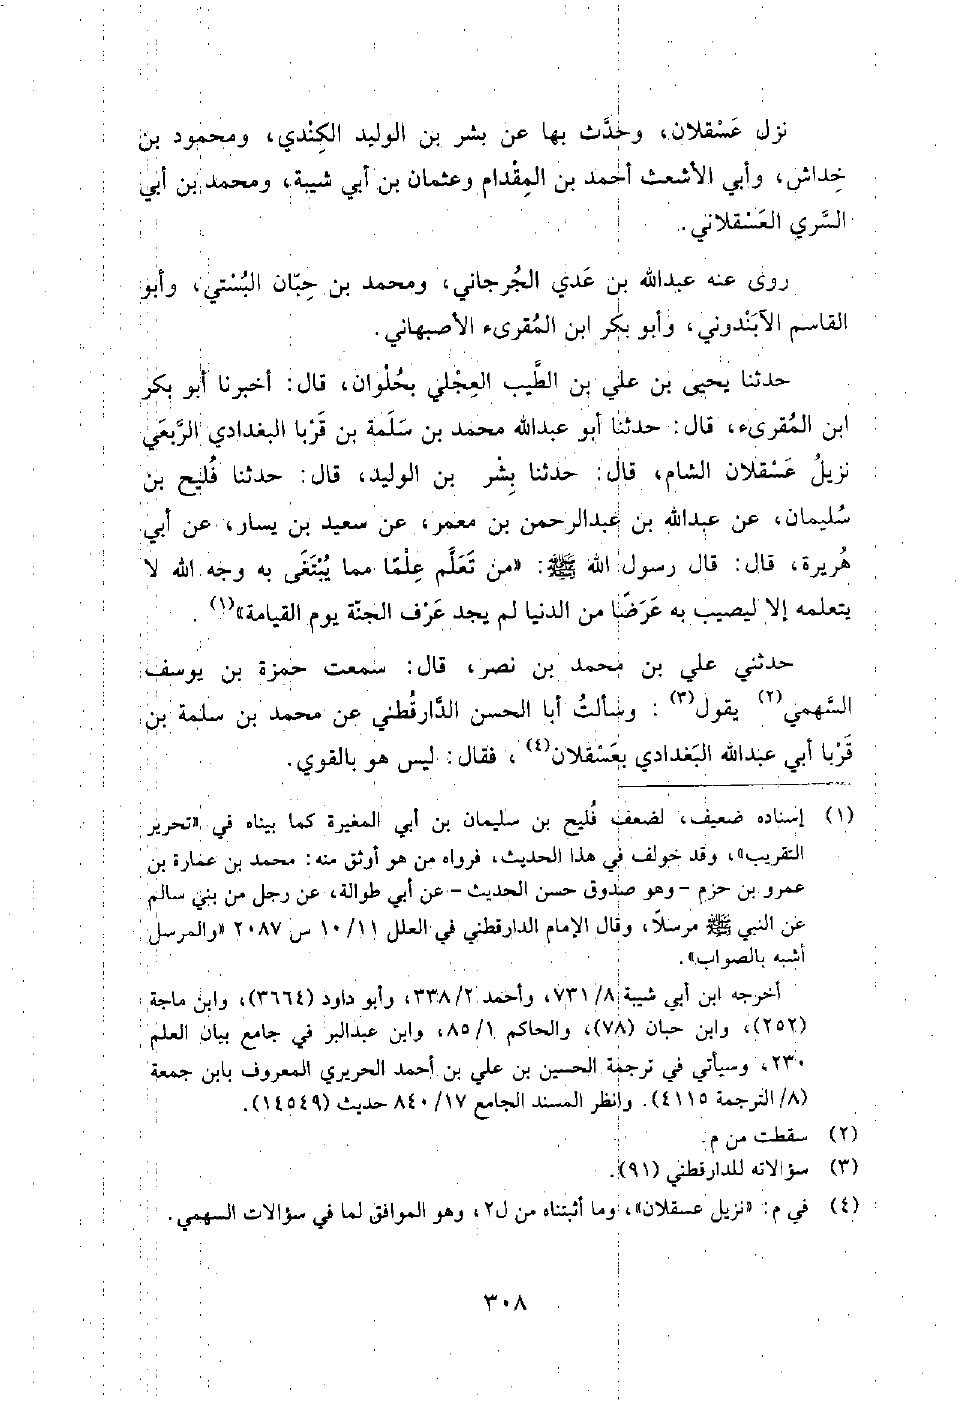 نزل عَسْقلان، وحَدَّث بها عن بشر بن الوليد الكِنْدي، ومحمود بن
خِداش، وأبي الأشعث أحمد بن المِقْدام وعثمان بن أبي شيبة، ومحمد بن أبي
السَّري العَسْقلاني.
روى عنه عبدالله بن عَدي الجُرجاني، ومحمد بن حِبّان البُسْتي، وأبو
القاسم الآبَنْدوني، وأبو بكر ابن المُقرىء الأصبهاني.
حدثنا يحيى بن علي بن الطَّيب العِجْلي بحُلْوان، قال: أخبرنا أبو بكر
ابن المُقرىء، قال: حدثنا أبو عبدالله محمد بن سَلَمة بن قَرْبا البغدادي الرَّبعَي
نزيلُ عَسْقلان الشام، قال: حدثنا بِشْر بن الوليد، قال: حدثنا فُليح بن
سُليمان، عن عبدالله بن عبدالرحمن بن معمر، عن سعيد بن يسار، عن أبي
هُريرة، قال: قال رسول الله ﷺ: «من تَعَلَّم عِلْمًا مما يُبْتَغَى به وجه الله لا
يتعلمه إلا ليصيب به عَرَضًا من الدنيا لم يجد عَرْف الجنّة يوم القيامة»(١).
حدثني علي بن محمد بن نصر، قال: سمعت حمزة بن يوسف
السَّهمي(٢) يقول(٣): وسألتُ أبا الحسن الدَّارقُطني عن محمد بن سلمة بن
قَرْبا أبي عبدالله البَغدادي بعَسْقلان(٤)، فقال: ليس هو بالقوي.
(١) إسناده ضعيف، لضعف فُليح بن سليمان بن أبي المغيرة كما بيناه في «تحرير
التقريب»، وقد خولف في هذا الحديث، فرواه من هو أوثق منه: محمد بن عمارة بن
عمرو بن حزم - وهو صدوق حسن الحديث - عن أبي طوالة، عن رجل من بني سالم
عن النبي ﷺ مرسلاً، وقال الإمام الدارقطني في العلل ١١/ ١٠ س ٢٠٨٧ «والمرسل
أشبه بالصواب».
أخرجه ابن أبي شيبة ٨/ ٧٣١، وأحمد ٢/ ٣٣٨، وأبو داود (٣٦٦٤)، وابن ماجة
(٢٥٢)، وابن حبان (٧٨)، والحاكم ١/ ٨٥، وابن عبدالبر في جامع بيان العلم
٢٣٠، وسيأتي في ترجمة الحسين بن علي بن أحمد الحريري المعروف بابن جمعة
(٨/ الترجمة ٤١١٥). وانظر المسند الجامع ١٧/ ٨٤٠ حديث (١٤٥٤٩).
(٢) سقطت من م.
(٣) سؤالاته للدارقطني (٩١).
(٤) في م: «نزيل عسقلان»، وما أثبتناه من ل٢، وهو الموافق لما في سؤالات السهمي.
٣٠٨